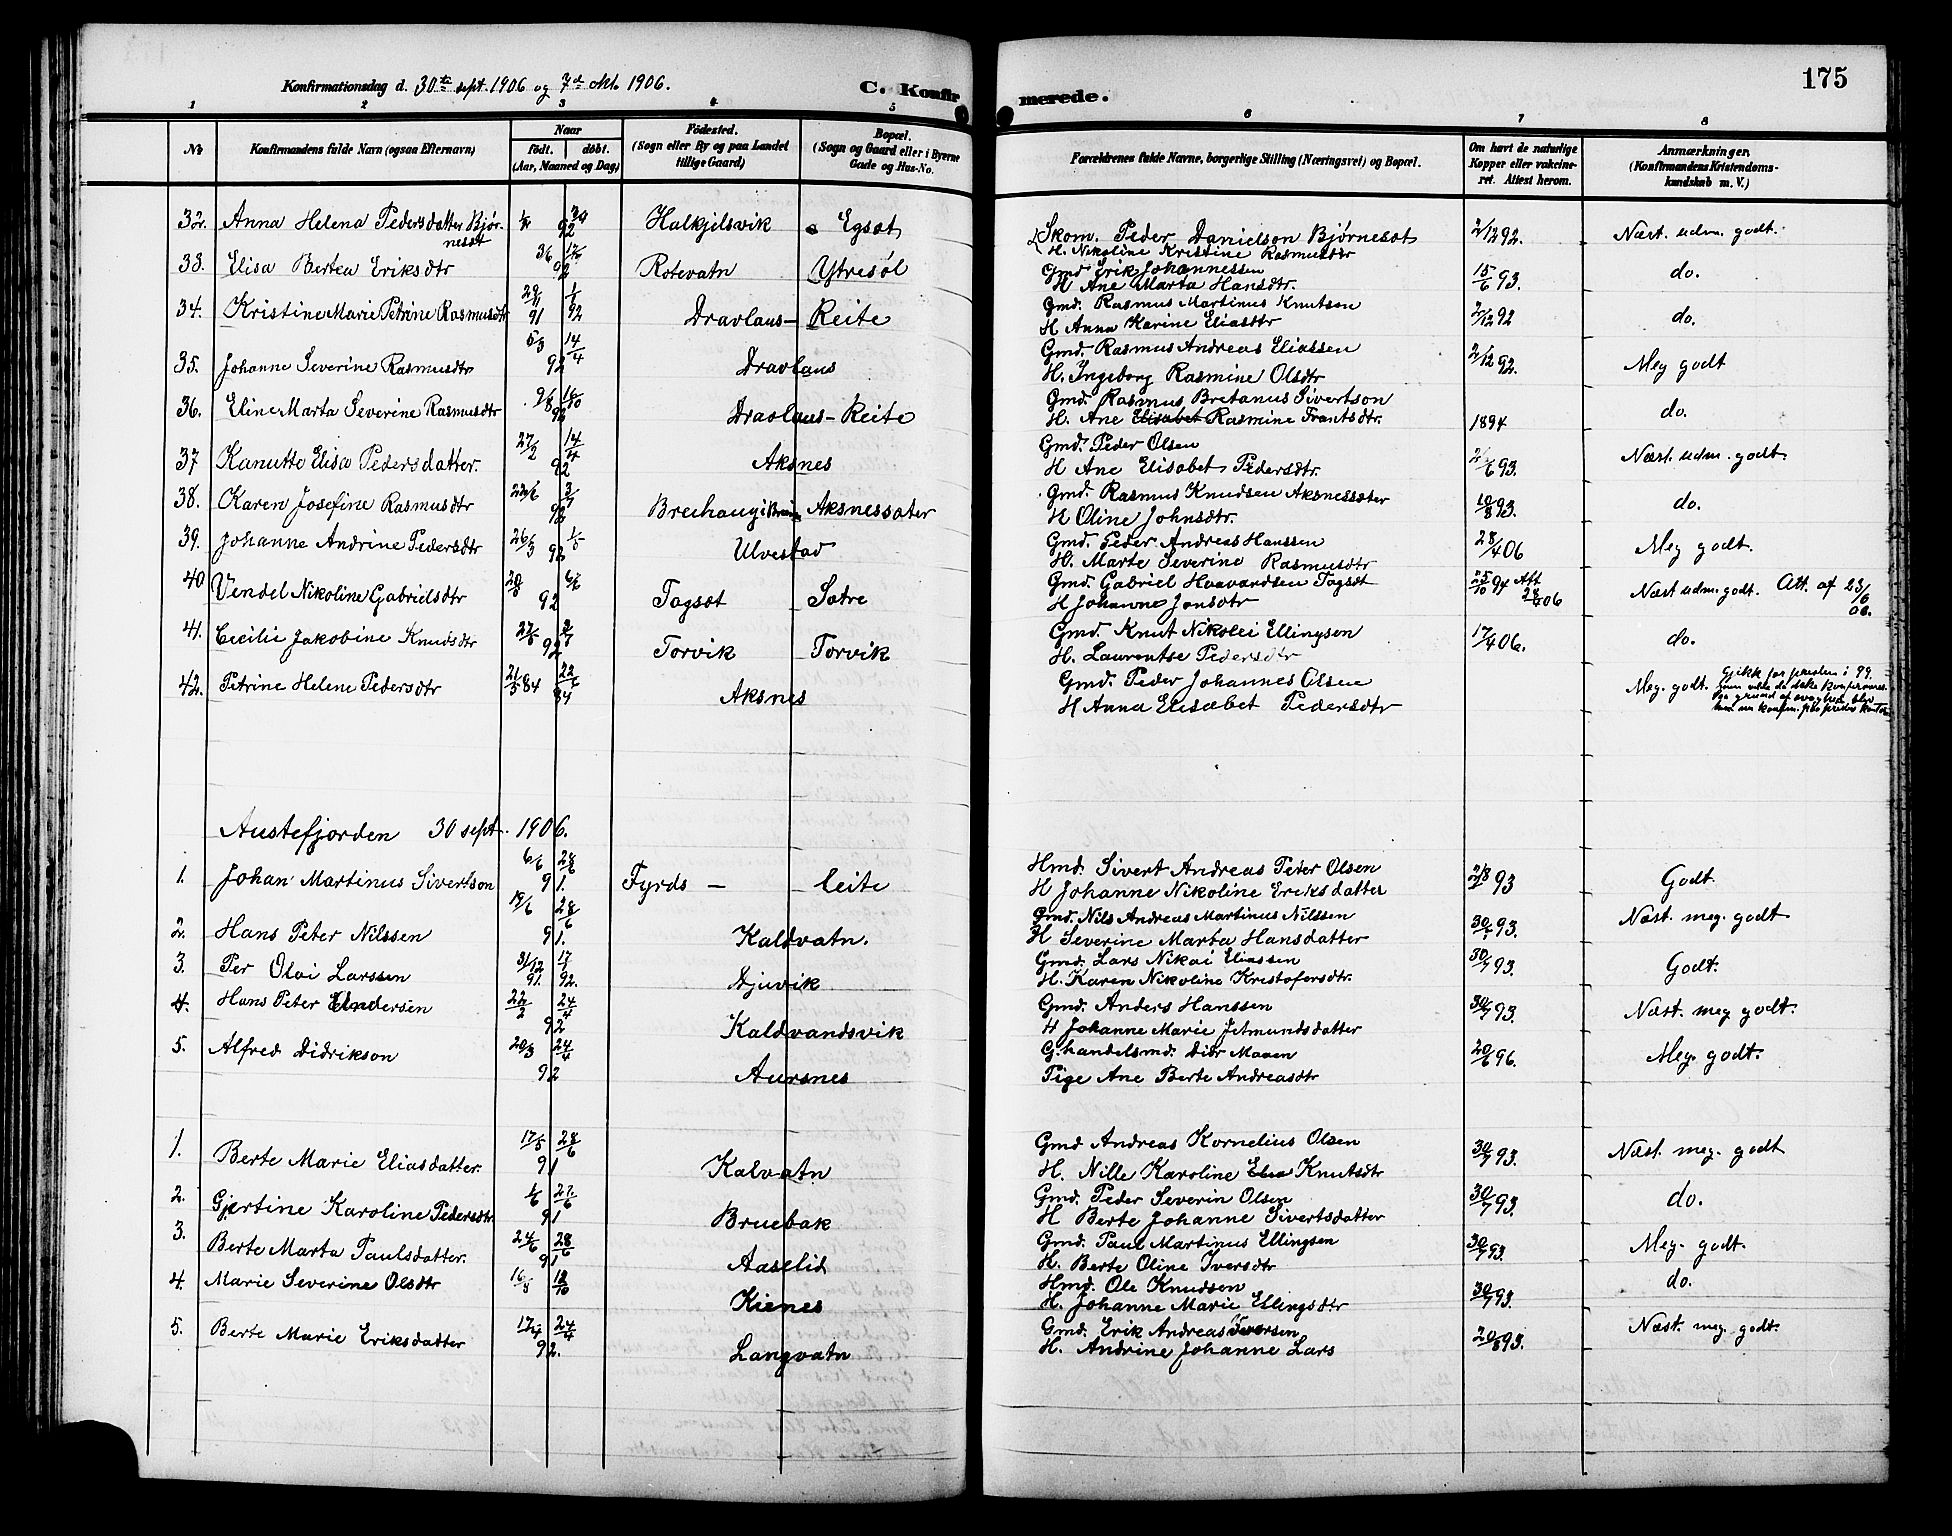 175
Konfirmationsdag d. 30te sept. 1906 og 7de okt. 1906.
C. Konfirmerede.
1 2 3 4 5 6 7 8
No
Konfirmandens fulde Navn (ogsaa Efternavn)
Naar
födt. döbt.
(Aar, Maaned og Dag)
Födested.
(Sogn eller By og paa Landet tillige Gaard)
Bopæl.
(Sogn og Gaard eller i Byerne Gade og Hus-No.
Forældrenes fulde Navne, borgerlige Stilling (Næringsvei) og Bopæl.
Om havt de naturlige Kopper eller vakcineret. Attest herom.
Anmærkninger.
(Konfirmandens Kristendomskundskab m. V.)
32. Anna Helena Pedersdatter Bjørnesæt 92 Halkjelsvik Egsæt Skom. Peder Danielson Bjørnesæt 2/12 92. Næst. udm. godt.
H. Nikoline Kristine Rasmusdtr
33. Elisa Bertea Eriksdtr 92 Rotevatn Ytresøl Gmd Erik Johannessen 15/6 93. do.
H Ane Marta Hansdtr.
34. Kristine Marie Petrine Rasmusdtr 29/11 91 92 Dravlaus- Reite Gmd. Rasmus Martinus Knutsen 2/12 92 do.
H Anna Karine Eliasdtr
35. Johanne Severine Rasmusdtr 5/3 14/4 92 Dravlaus Gmd. Rasmus Andreas Eliassen 2/12 92. Meg godt
H. Ingeborg Rasmine Olsdtr
36. Eline Marta Severine Rasmusdtr 9/8 16/10 92 Dravlaus- Reite Gmd. Rasmus Bretanus Sivertson 1894 do.
H. Ane Elisabet Rasmine Frantsdtr.
37 Kanutte Elisa Pedersdatter. 27/2 14/4 92 Aksnes Gmd. Peder Olsen 93. Næst. udm. godt.
H Ane Elisabet Pedersdtr.
38. Karen Josefine Rasmusdtr 22/6 3/7 92 Aksnessæter Gmd. Rasmus Knudsen Aksnessæter 10/8 93. do.
H Oline Johnsdtr.
39. Johanne Andrine Pedersdtr 26/3 92 Ulvestad Gmd. Peder Andreas Hanssen 28/4 06 Meg godt.
H. Marte Severine Rasmusdtr
40 Vendel Nikoline Gabrielsdtr 92 Togsæt Sætre Gmd. Gabriel Haavardsen Togsæt 25/10 94 Att 28/4 06 Næst udm. godt. Att. af 23/6 06.
H Johanne Jonsdtr
41. Cecilie Jakobine Knudsdtr 92 Torvik Torvik Gmd. Knut Nikolei Ellingson 17/4 06. do.
H. Laurentse Pedersdtr
42. Petrine Helene Pedersdtr 21/5 84 84 Aksnes Gmd. Peder Johannes Olsen Meg. godt. Gjikk for presten i 99.
H Anna Elisabet Pedersdtr
Austefjorden 30 sept. 1906.
1. Johan Martinus Sivertson 6/6 28/6 91. Fyrds - leite Hmd. Sivert Andreas Peter Olsen 93 Godt.
H Johanne Nikoline Eriksdatter
2. Hans Peter Nilssen 18/6 28/6 91. Kaldvatn. Gmd. Nils Andreas Martinus Nilssen 30/7 93. Næst. meg. godt
H Severine Marta Hansdatter
3. Per Olai Larssen 31/12 91. 17/4 92. Djuvik Gmd. Lars Nikai Eliassen 30/7 93. Godt.
H. Karen Nikoline Kristofersdtr.
4. Hans Peter Andersen 22/2 24/4 92 Kaldvandsvik Gmd. Anders Hanssen 30/7 93. Næst. meg godt.
H Johanne Marie Jetmundsdatter
5. Alfred Didrikson 20/3 24/4 92 Aursnes G.handelsmd. Didr Maaen 20/6 96. Meg. godt.
Pige Ane Berte Andreasdtr
1. Berte Marie Eliasdatter. 17/5 28/6 91 Kalvatn Gmd Andreas Kornelius Olsen 30/7 93. Næst. meg. godt
H. Nille Karoline Knutsdtr
2. Gjertine Karoline Pedersdtr 1/6 27/6 91 Bruebak Gmd. Peder Severin Olsen 30/7 93. do.
H Berte Johanne Sivertsdatter
3. Berte Marta Paulsdatter. 24/6 28/6 91 Aaselid Gmd. Paul Martinus Ellingsen 30/7 93. Meg. godt.
H. Berte Oline Iversdtr
4. Marie Severine Olsdtr 16/8 18/10 Kienes Hmd. Ole Knudsen 30/7 93. do.
H. Johanne Marie Ellingsdtr
5. Berte Marie Eriksdatter 17/4 24/4 92. Langvatn Gmd. Erik Andreas Iversen 20/8 93. Næst. meg. godt.
H. Andrine Johanne Lars